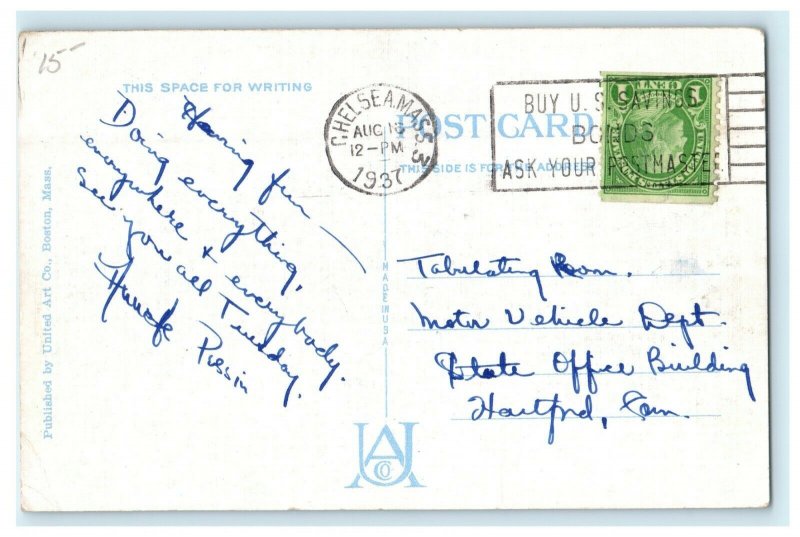 '15-
THIS SPACE FOR WRITING
POST CARD
THIS SIDE IS FOR THE ADDRESS
CHELSEA MASS.
AUG 16
12-PM
1937
3
BUY U. S. SAVINGS
BONDS
ASK YOUR POSTMASTER
Having fun —
Doing everything,
everywhere & everybody.
See you all Tuesday.
Tabulating Room.
Motor Vehicle Dept.
State Office Building
Hartford, Conn.
Published by United Art Co., Boston, Mass.
MADE IN USA
UACO